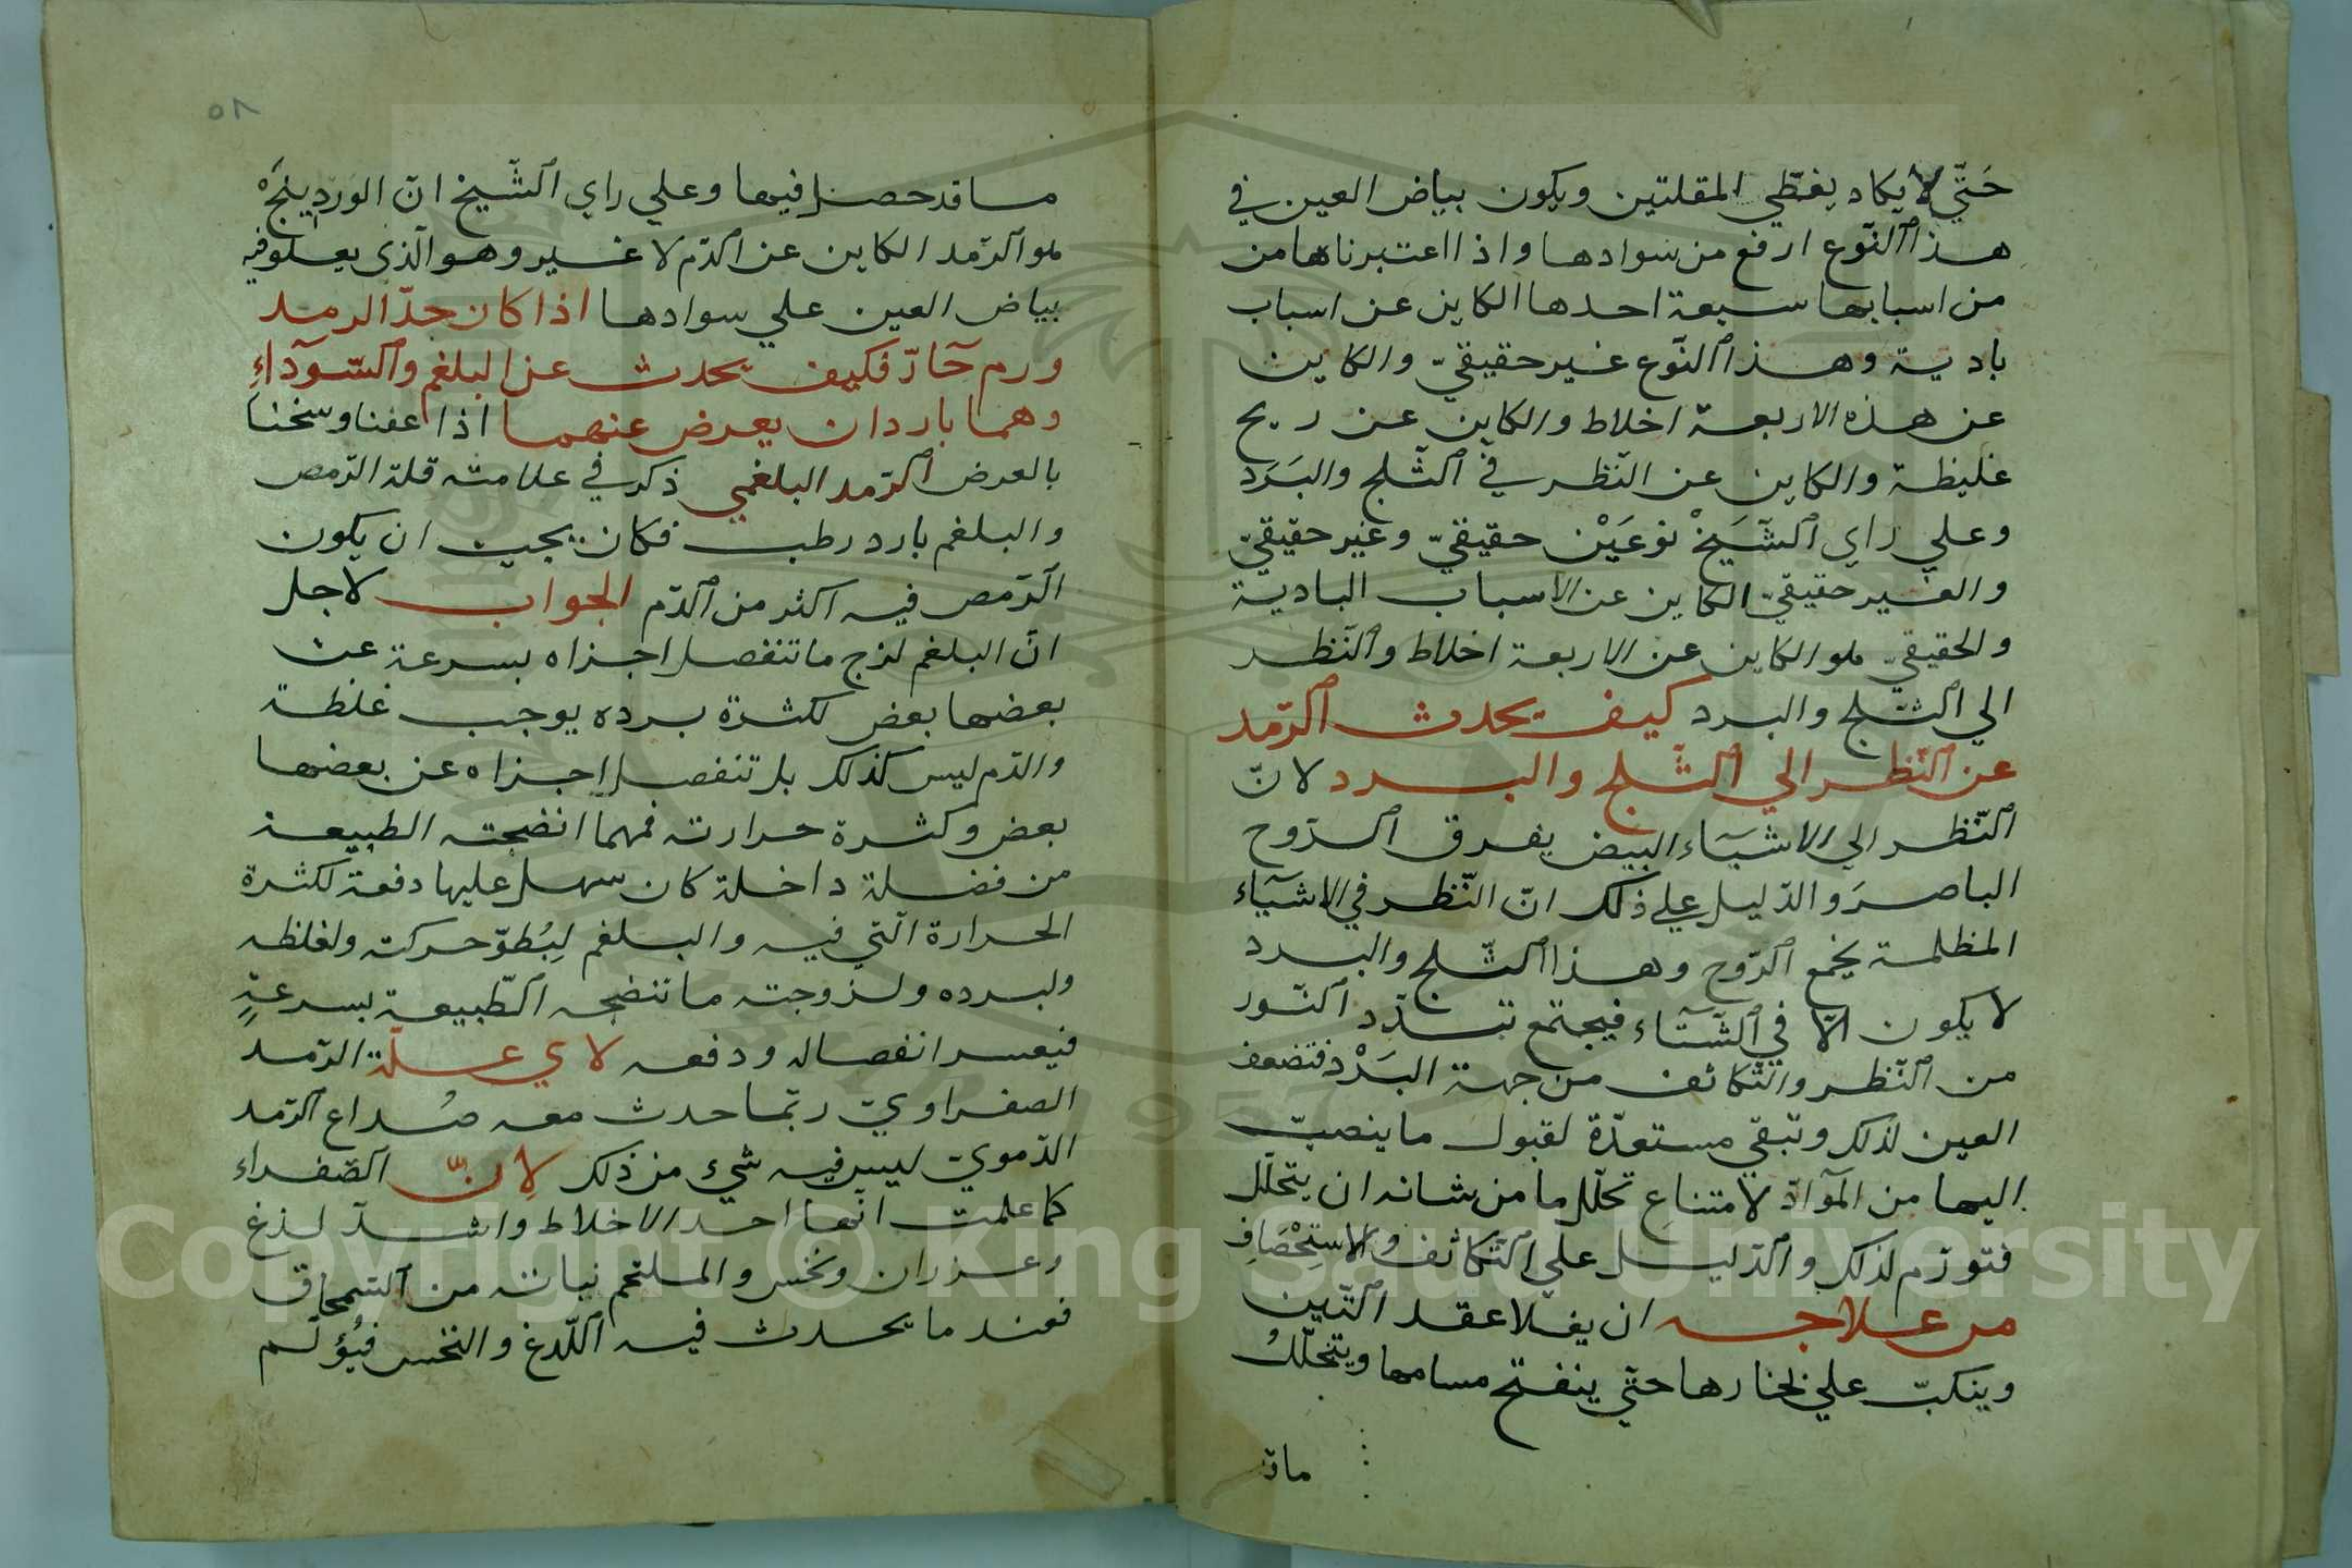 حَتّي لا يكاد يغطّي المقلتين ويكون بياض العين في
هذا النّوع ارفع من سوادها واذا اعتبرناها من
من اسبابها سبعة احدها الكاين عن اسباب
بادية وهذا النّوع غير حقيقيّ والكاين
عن هذه الاربعة اخلاط والكاين عن ريح
غليظة والكاين عن النّظر في الثّلج والبَرَد
وعلي راي الشَّيَخْ نوعَيْن حقيقيّ وغير حقيقيّ
والغير حقيقيّ الكاين عن الاسباب البادية
والحقيقيّ هو الكاين عن الاربعة اخلاط والنّظر
الي الثّلج والبرد كيف يحدث الرّمد
عن النّظر الي الثّلج والبرد لانّ
النّظر الي الاشيَآء البيض يفرق الرّوح
الباصرَ والدّليل علي ذلك انّ النّظر في الاشيَآء
المظلمة يجمع الرّوح وهذا الثّلج والبرد
لا يكون الّا في الشّتَآء فيجتمع تبدّد النّور
من النّظر والتّكاثف من جهة البَرْد فتضعف
العين لذلك وتبقي مستعدّة لقبول ما ينصبّ
اليها من الموآدّ لامتناع تحلّل ما من شانه ان يتحلّل
فتورّم لذلك والدّليل علي التّكاثف والاستِحْصَافِ
من علاجه ان يغلا عقد التّين
وينكبّ علي بخارها حتّي ينفتح مسامها ويتحلّلُ
ماقد
٥٨
ما قد حصل فيها وعلي راي الشّيخ انّ الوَردينَجْ
هو الرّمد الكاين عن الدّم لا غير وهو الّذي يعلو فيه
بياض العين علي سوادها اذا كان حدّ الرمد
ورم حَآدّ فكيف يحدث عن البلغم والسّودآءِ
وهما باردان يعرض عنهما اذا عفنا وسخنا
بالعرض الرّمد البلغمي ذكر في علامته قلة الرّمص
والبلغم بارد رطب فكان يجب ان يكون
الرّمص فيه اكثر من الدّم الجواب لاجل
انّ البلغم لزج ما تنفصل اجزاه بسرعة عن
بعضها بعض لكثرة برده يوجب غلظة
والدّم ليس كذلك بل تنفصل اجزاه عن بعضها
بعض وكثرة حرارته فمهما انضجته الطبيعة
من فضلة داخلة كان سهل عليها دفعة لكثرة
الحرارة الّتي فيه والبلغم لِبُطوّ حركته ولغلظه
ولبرده ولزوجته ما تنضجه الطّبيعة بسرعةٍ
فيعسر انفصاله ودفعه لاي علّة الرّمد
الصفراويّ ربّما حدث معه صُداع الرّمد
الدّمويّ ليس فيه شيء من ذلك لِانّ الصّفراء
كما علمت انّها احد الاخلاط واشدّ لذع
وعزران ونخس والملتحم نباته من السّمحاق
فعند ما يحدث فيه اللّدغ والنّخس فيُؤلم
Copyright © King Saud University
1957